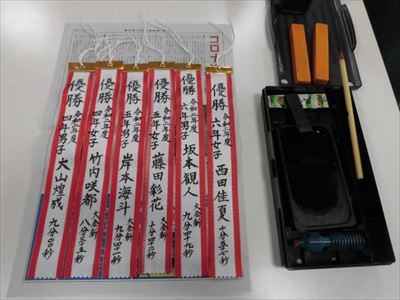 優勝
令和二年度
六年女子
西田佳夏
十分五七秒
優勝
令和二年度
六年男子
坂本観人
大会新
九分四九秒
優勝
令和二年度
五年女子
藤田彩花
十分四二秒
優勝
令和二年度
五年男子
岸本海斗
大会新
九分四二秒
優勝
令和二年度
四年女子
竹内咲都
大会新
八分三五秒
優勝
令和二年度
四年男子
大山煌成
九分〇〇秒
コロナ